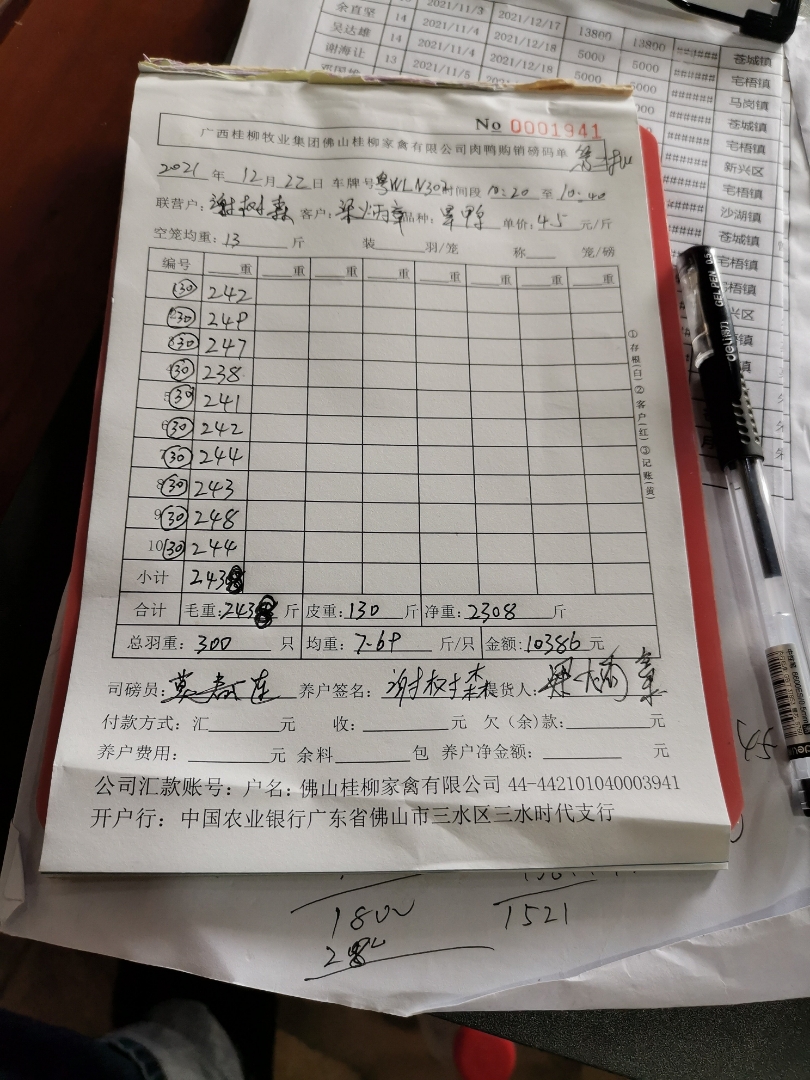 余直坚 14 2021/11/3 2021/12/17 13800 13800 ####### 苍城镇
吴达雄 14 2021/11/4 2021/12/18 5000 5000 ###### 宅梧镇
谢海让 13 2021/11/4 2021/12/18 5000 5000 ###### 马岗镇
2021/11/5 ###### 苍城镇
###### 宅梧镇
###### 新兴区
###### 宅梧镇
###### 沙湖镇
###### 苍城镇
宅梧镇
No 0001941
广西桂柳牧业集团佛山桂柳家禽有限公司肉鸭购销磅码单
2021年12月22日 车牌号粤WLN303时间段10:20至10:40
联营户:谢树森 客户:梁炳章品种: 单价:4.5元/斤
空笼均重:13斤 装 羽/笼 称 笼/磅
编号 重 重 重 重 重 重 重 重
1 30 242
2 30 249
3 30 247
4 30 238
5 30 241
6 30 242
7 30 244
8 30 243
9 30 248
10 30 244
小计 2438
合计 毛重:2438斤 皮重:130斤 净重:2308斤
总羽重:300只 均重:7.69斤/只 金额:10386元
司磅员: 养户签名:谢树森 提货人:梁炳章
付款方式:汇 元 收: 元 欠(余)款: 元
养户费用: 元 余料 包 养户净金额: 元
公司汇款账号:户名:佛山桂柳家禽有限公司 44-442101040003941
开户行:中国农业银行广东省佛山市三水区三水时代支行
①存根(白)②客户(红)③记账(黄)
deli得力 GEL PEN
45
1800
1521